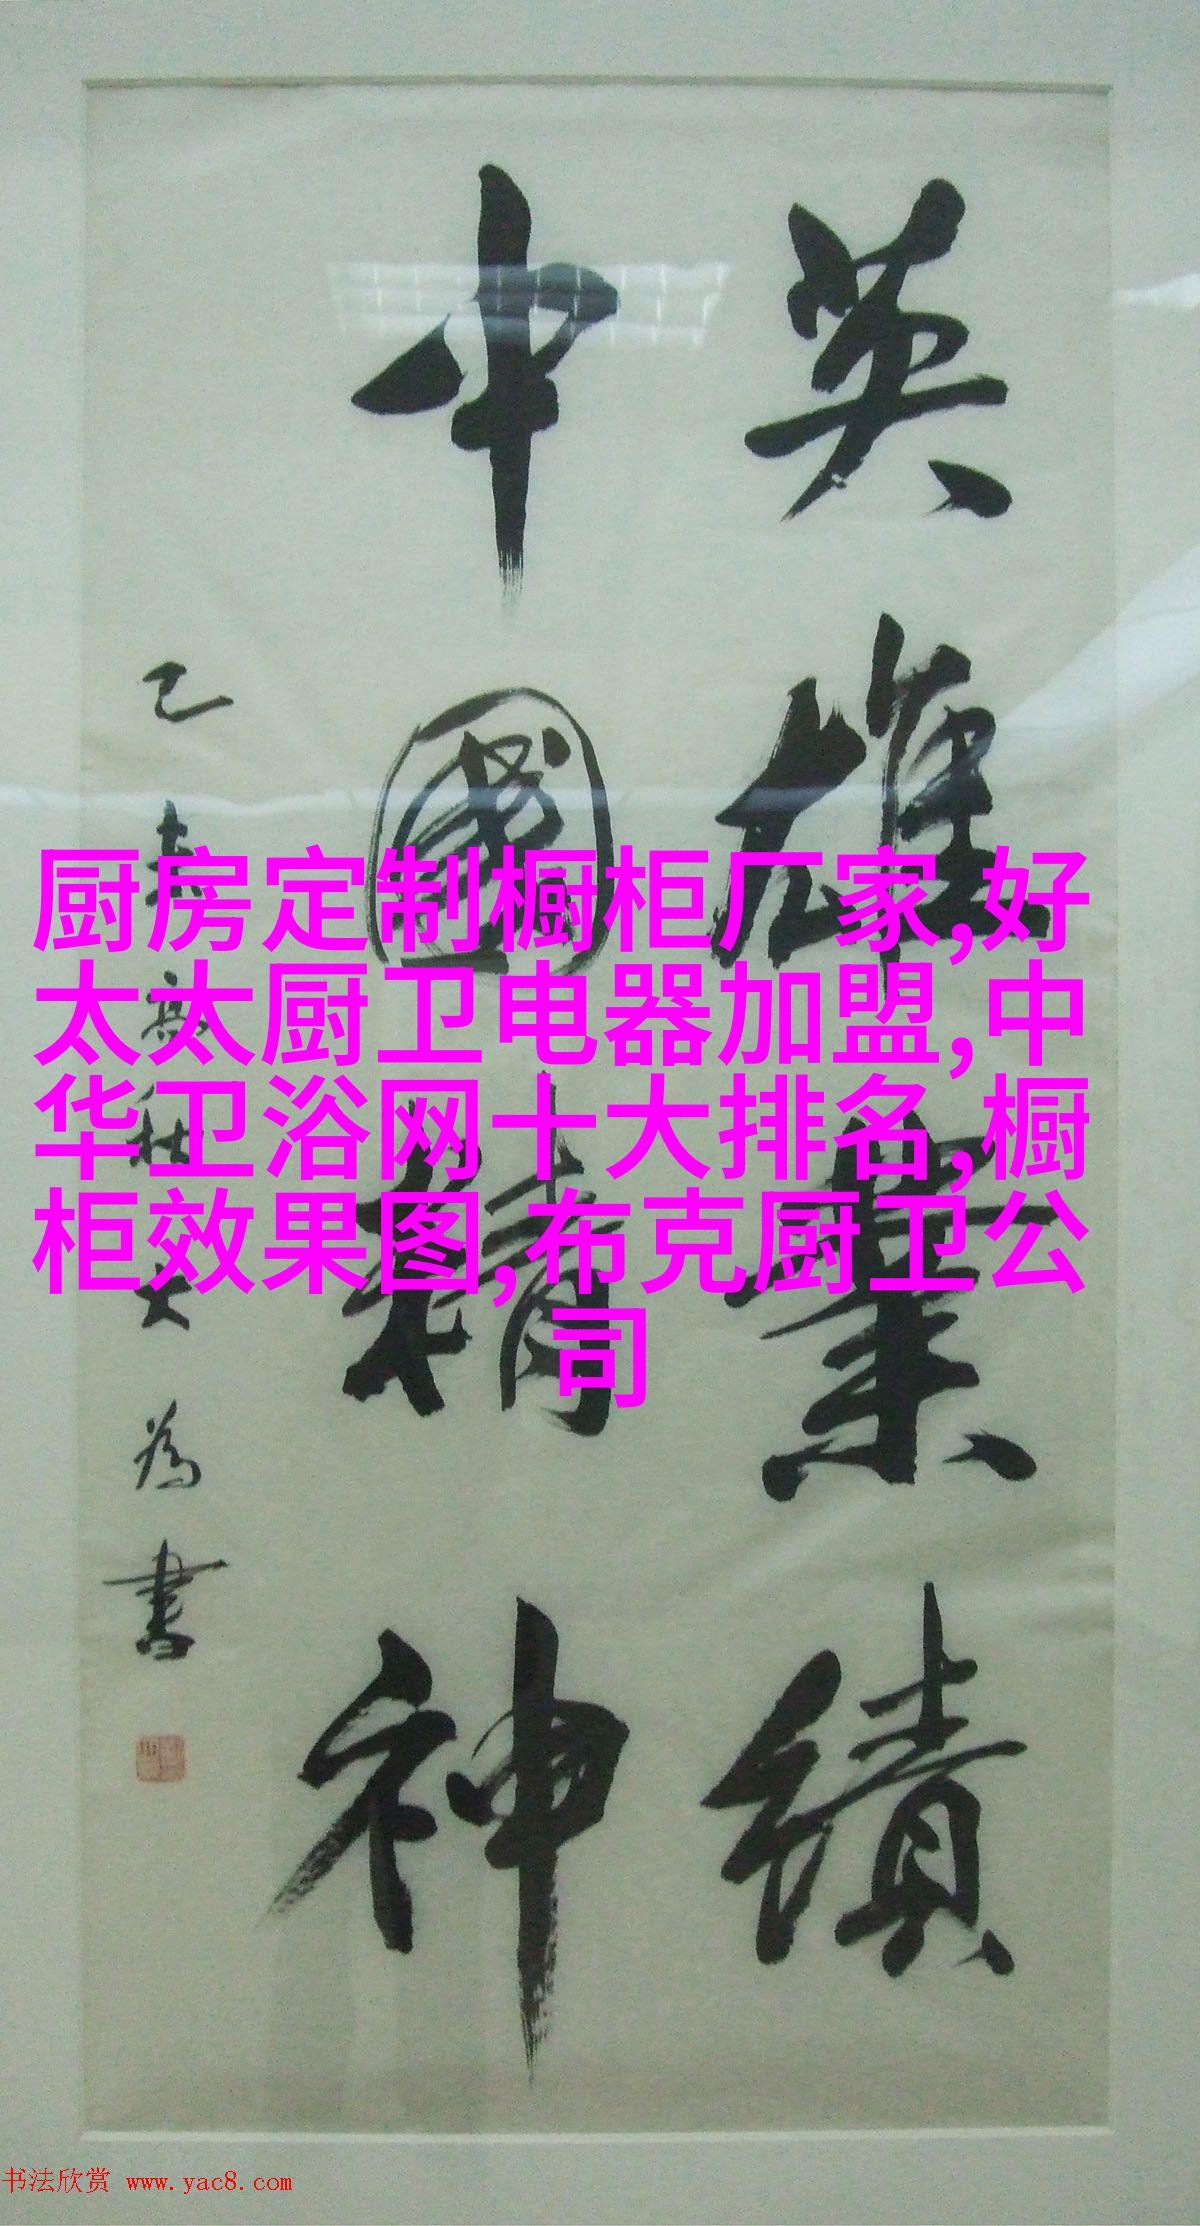 英雄業績
中國精神
乙
秋大為書
厨房定制橱柜厂家,好
太太厨卫电器加盟,中
华卫浴网十大排名,橱
柜效果图,布克厨卫公
司
书法欣赏 www.yac8.com